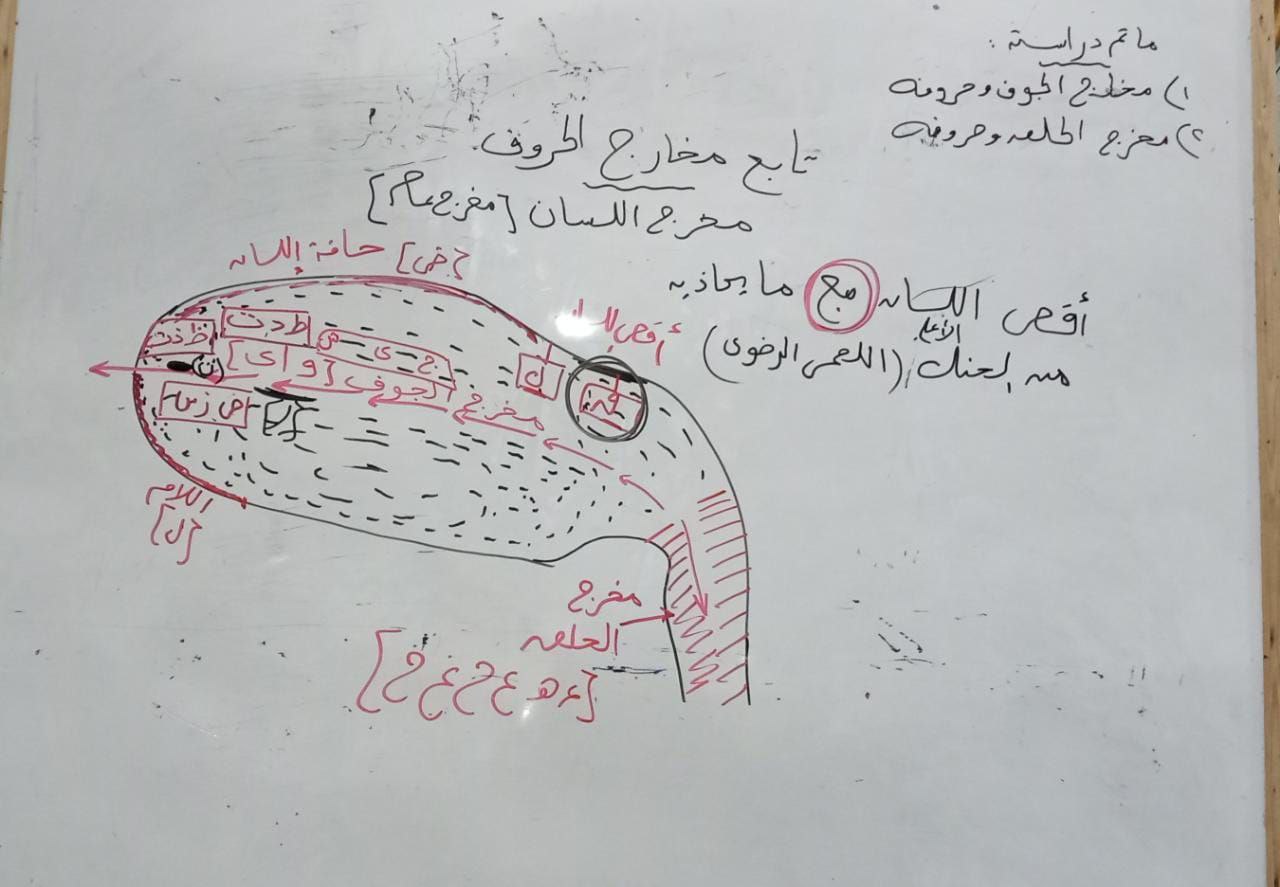 ما تم دراسته :
١) مخارج الجوف وحروفه
٢) مخرج الحلق وحروفه
تابع مخارج الحروف
مخرج اللسان [مخرج عام]
أقصى اللسان مع ما يحاذيه
من الحنك الأعلى (اللحمى الرخوى)
[ض] حافة اللسان
أقصى اللسان
ق
ك
ج ى ش
ط د ت
ظ ذ ث
(ن)
مخرج الجوف [و ا ى]
ص ز س
[ر]
اللام
[ل]
مخرج
الحلق
[ء ه ع ح غ خ]